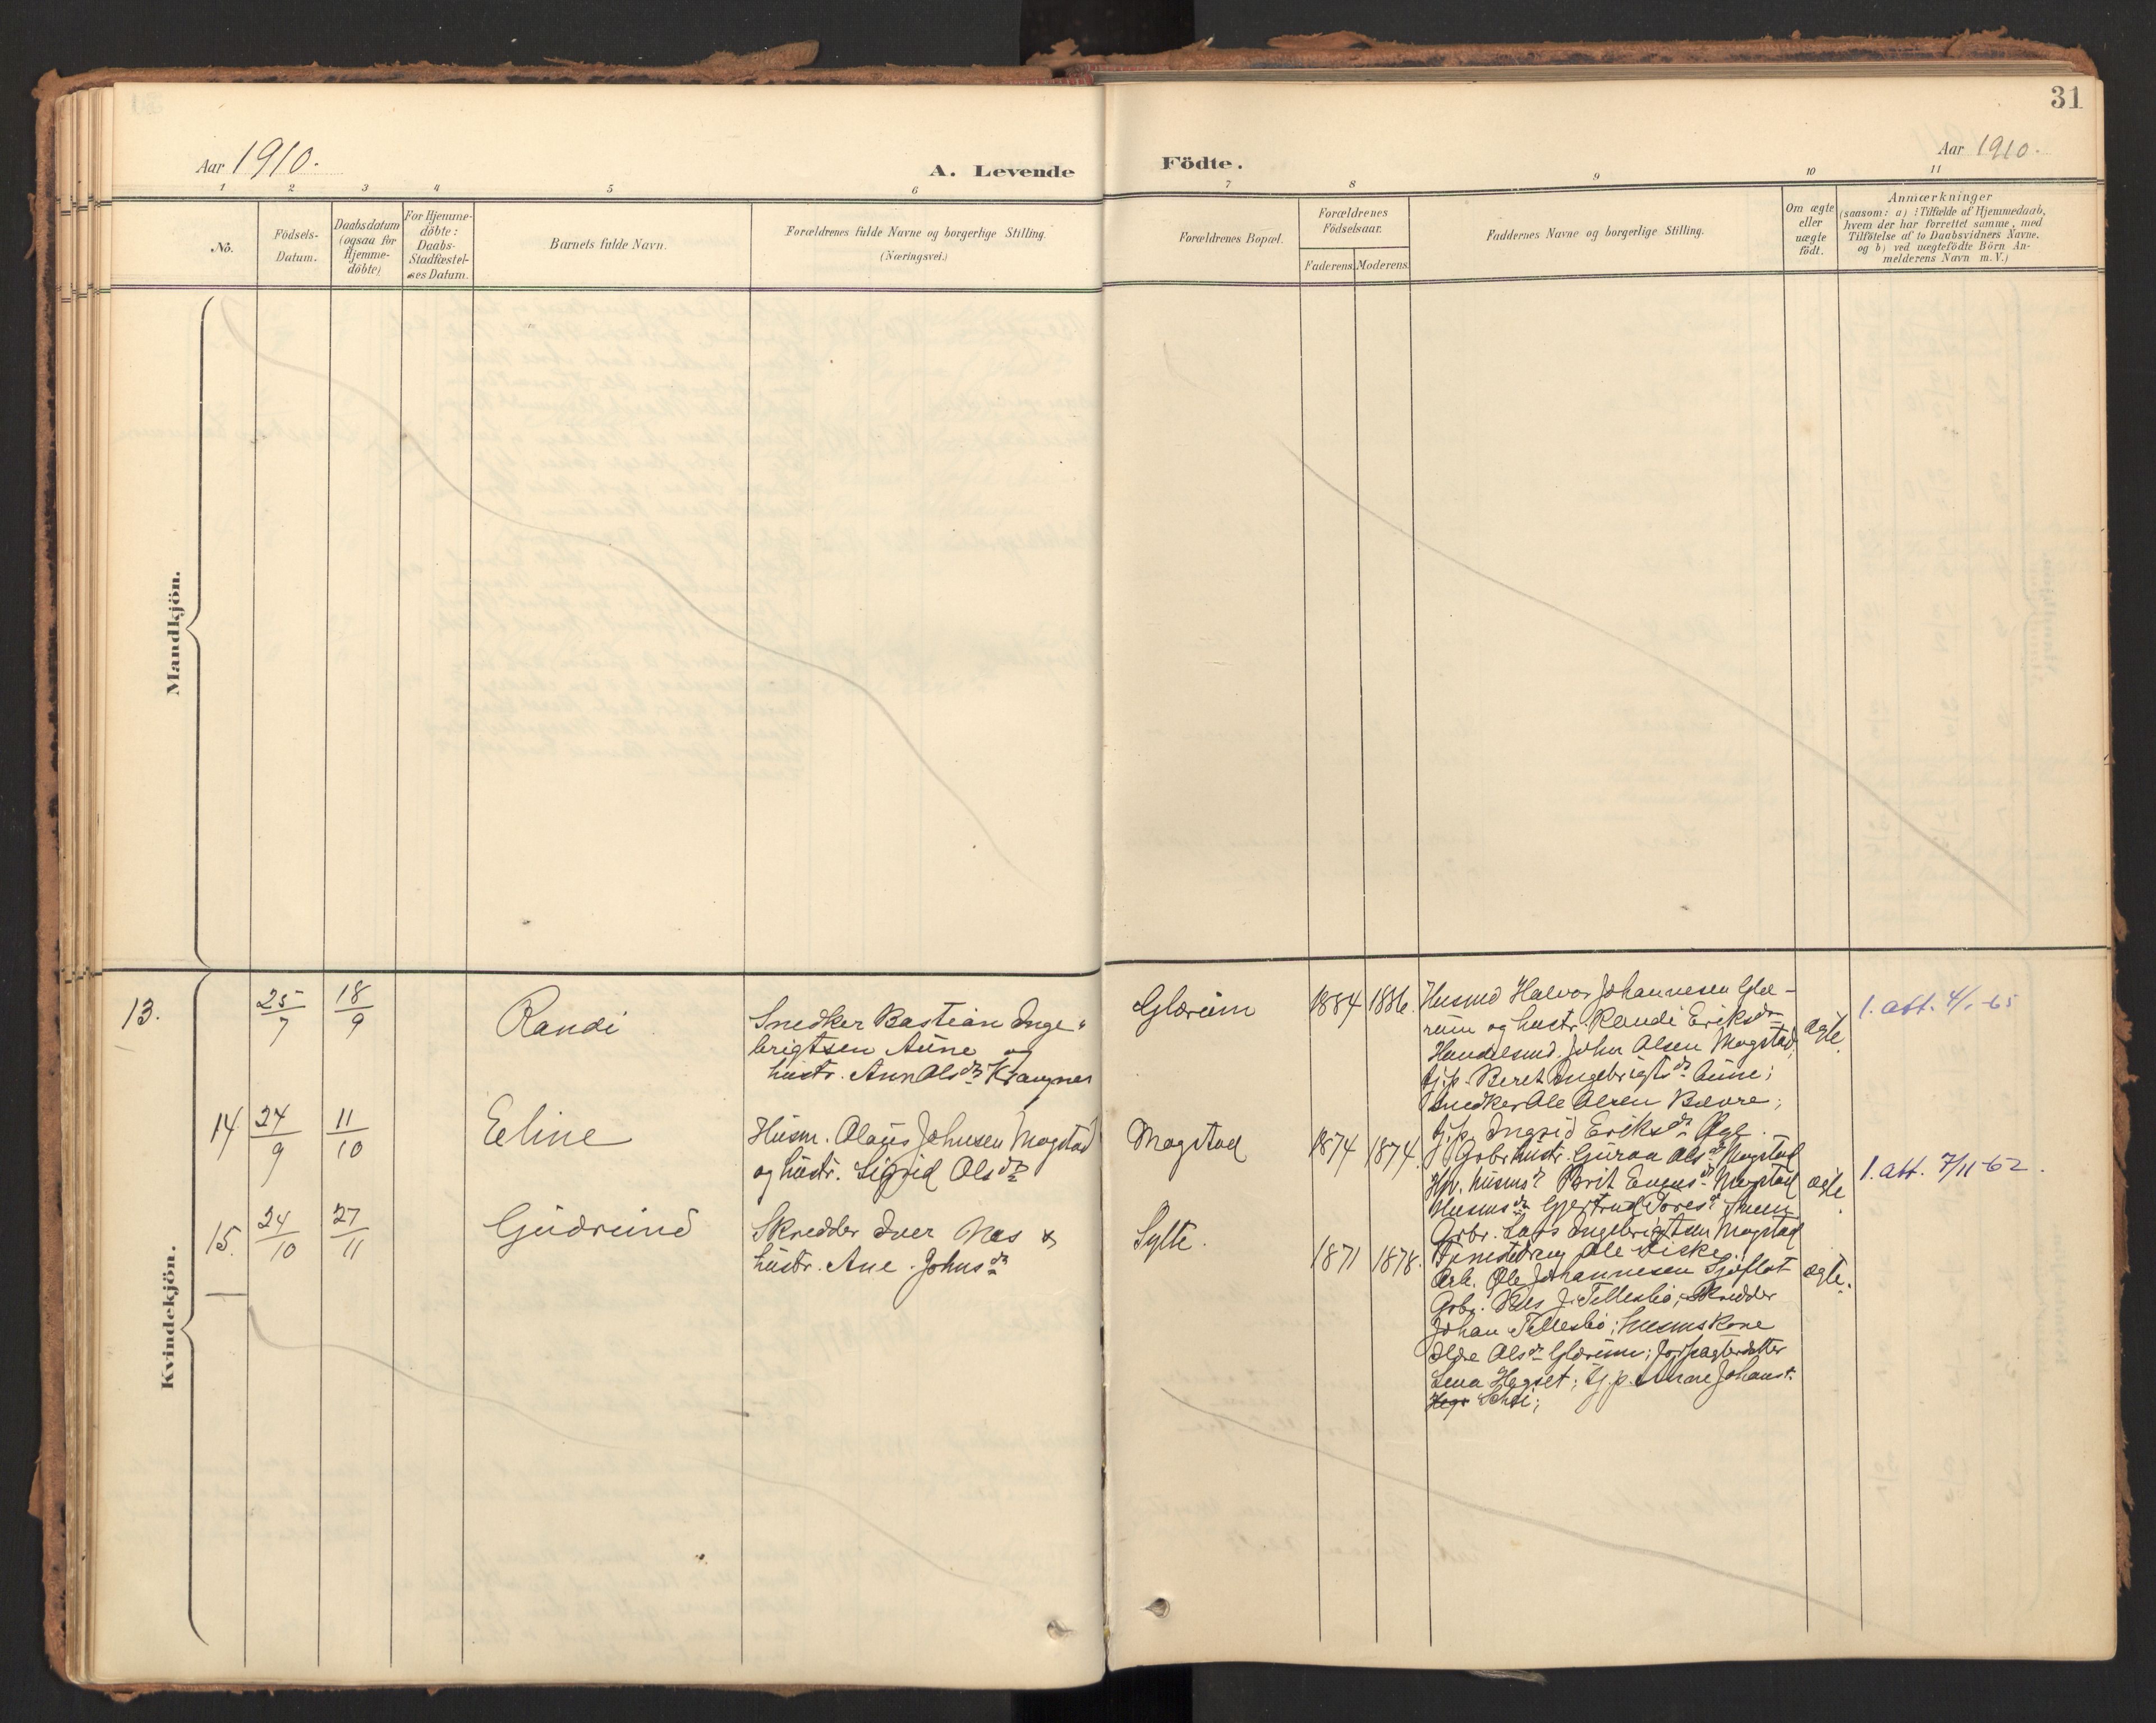 31
Aar 1910.
A. Levende
Födte.
Aar 1910.
1 2 3 4 5 6 7 8 9 10 11
No.
Födsels-
Datum.
Daabsdatum
(ogsaa for
Hjemme-
döbte)
For Hjemme-
döbte:
Daabs-
Stadfæstel-
ses Datum.
Barnets fulde Navn.
Forældrenes fulde Navne og borgerlige Stilling.
(Næringsvei.)
Forældrenes Bopæl.
Forældrenes
Födselsaar.
Faderens. Moderens.
Faddernes Navne og borgerlige Stilling.
Om ægte
eller
uægte
födt.
Anmærkninger
(saasom: a) i Tilfælde af Hjemmedaab,
hvem der har forrettet samme, med
Tilföielse af to Daabsvidners Navne.
og b) ved uægtefödte Börn An-
melderens Navn m. V.)
Mandkjön.
Kvindekjön.
13.
25/7
18/9
Randi
Snedker Bastian Inge-
brigtsen Aune og
hustr. Ann Olsdr Krangnes
Glærum
1884 1886.
Husmd Halvor Johannesen Glæ-
rum og hustr. Randi Eriksdr
Handelsmd. John Olsen Mogstad;
tj.p. Beret Ingebrigtsdr Aune;
Snedker Ole Olsen Bævre;
tj.p. Ingrid Eriksdr
ægte.
1. att. 4/1-65
14
24/9
11/10
Eline
Husm. Olaus Johnsen Mogstad
og hustr. Sigrid Olsdr
Mogstad
1874 1874.
Gbr hustr. Guraa Olsdr Mogstad
Brit Mogstad
Husmsdr Gjertrud Toresdr
Grbr. Lars Ingebrigtsen Mogstad
Ole
ægte.
1. att. 7/11-62.
15.
24/10
27/11
Gudrund
Skredder Iver Næs &
hustr. Ane Johnsdr
Sylte.
1871 1878.
Arb. Ole Johannesen Sjøflot
Grbr. Nils J. Tellesbø; Skredder
Johan Tellesbø; husmskone
Olsdr Glærum; Forpagterdatter
Lena Hegset; tj.p. Johansdr
ægte.